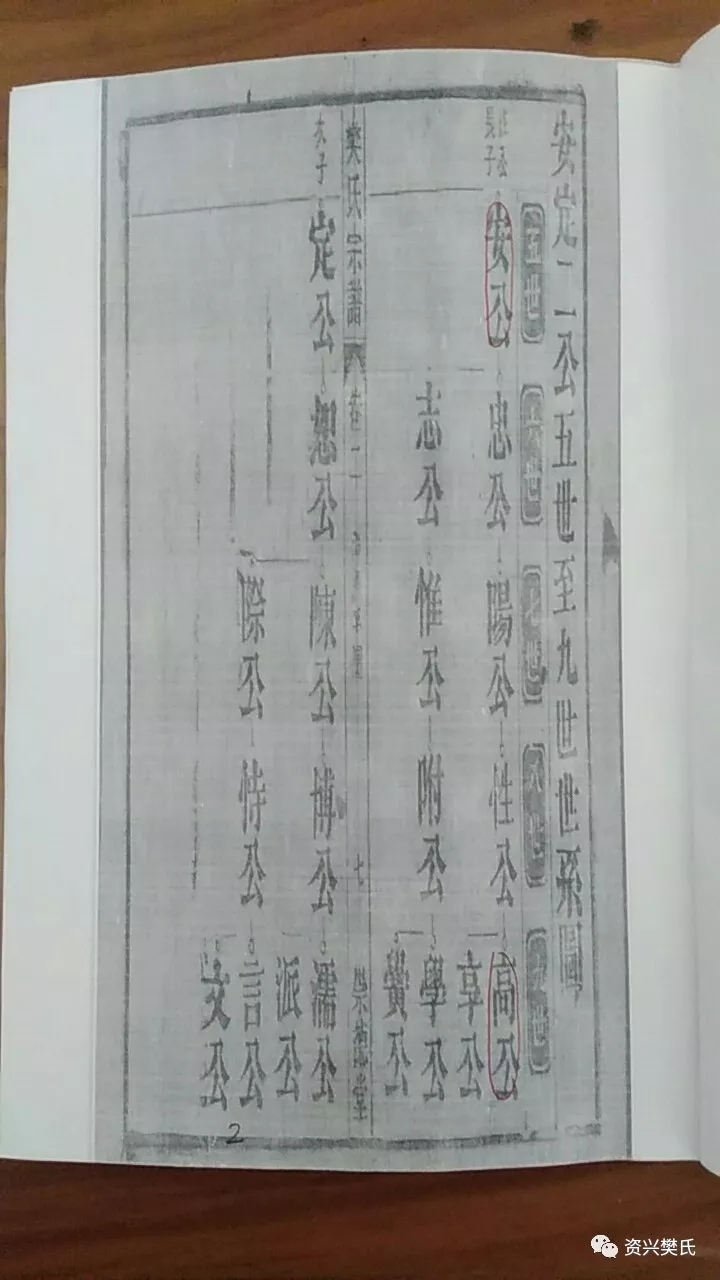 安定二公五世至九世世系圖
五世
六世
七世
八世
九世
長子
安公
忠公
陽公
性公
高公
享公
志公
惟公
附公
學公
黌公
樊氏宗譜
卷二
七
崇德堂
次子
定公
恕公
陳公
博公
濡公
派公
際公
恃公
言公
文公
2
资兴樊氏